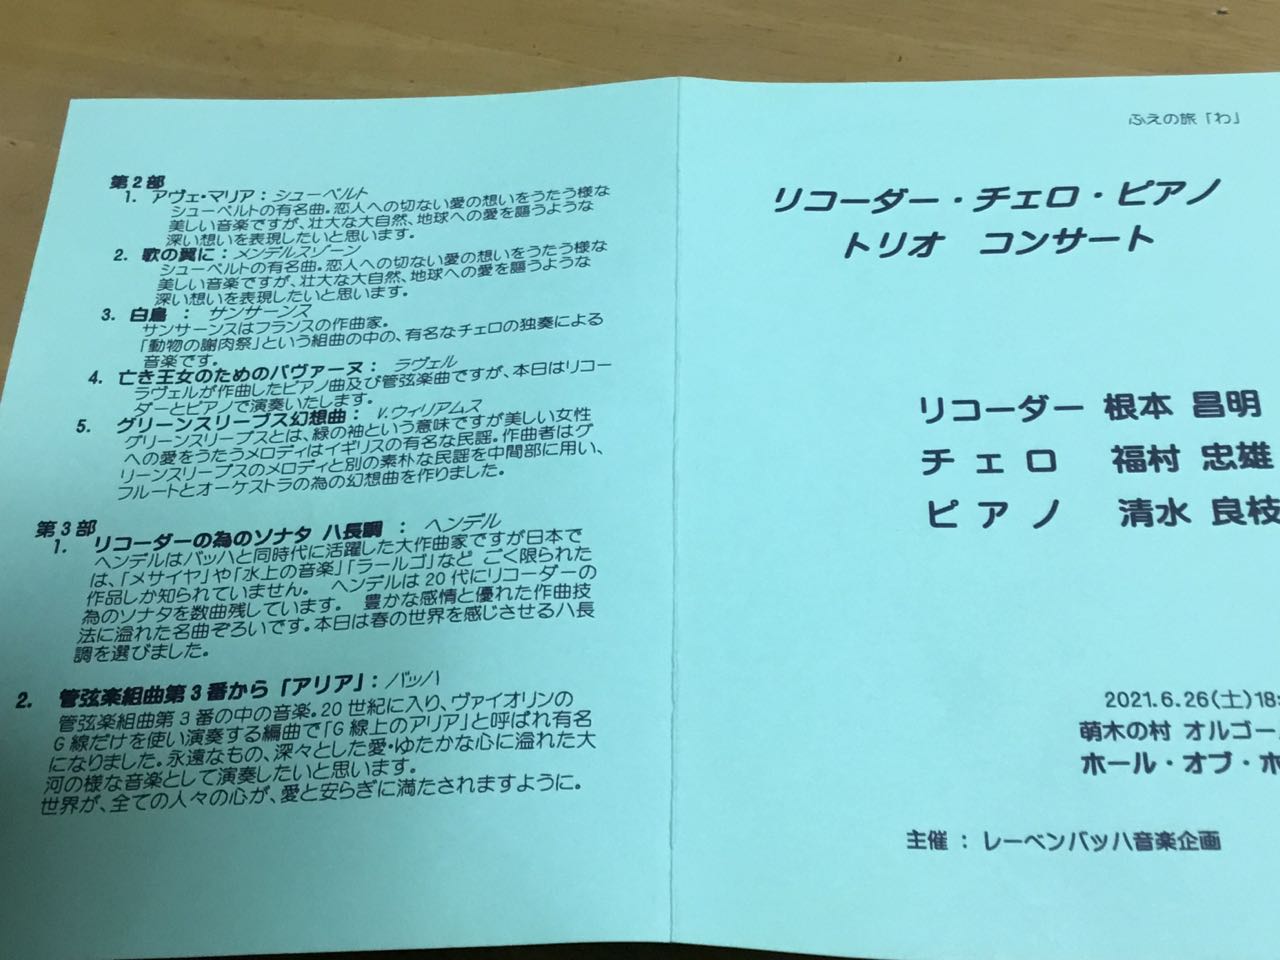 第2部
1. アヴェ・マリア：シューベルト
シューベルトの有名曲。恋人への切ない愛の想いをうたう様な
美しい音楽ですが、壮大な大自然、地球への愛を謳うような
深い想いを表現したいと思います。
2. 歌の翼に：メンデルスゾーン
シューベルトの有名曲。恋人への切ない愛の想いをうたう様な
美しい音楽ですが、壮大な大自然、地球への愛を謳うような
深い想いを表現したいと思います。
3. 白鳥 ： サンサーンス
サンサーンスはフランスの作曲家。
「動物の謝肉祭」という組曲の中の、有名なチェロの独奏による
音楽です。
4. 亡き王女のためのパヴァーヌ： ラヴェル
ラヴェルが作曲したピアノ曲及び管弦楽曲ですが、本日はリコー
ダーとピアノで演奏いたします。
5. グリーンスリーブス幻想曲： V.ウィリアムス
グリーンスリーブスとは、緑の袖という意味ですが美しい女性
への愛をうたうメロディはイギリスの有名な民謡。作曲者はグ
リーンスリーブスのメロディと別の素朴な民謡を中間部に用い、
フルートとオーケストラの為の幻想曲を作りました。
第3部
1. リコーダーの為のソナタ ハ長調 ： ヘンデル
ヘンデルはバッハと同時代に活躍した大作曲家ですが日本で
は、「メサイヤ」や「水上の音楽」「ラールゴ」など ごく限られた
作品しか知られていません。 ヘンデルは20代にリコーダーの
為のソナタを数曲残しています。 豊かな感情と優れた作曲技
法に溢れた名曲ぞろいです。本日は春の世界を感じさせるハ長
調を選びました。
2. 管弦楽組曲第3番から「アリア」：バッハ
管弦楽組曲第3番の中の音楽。20世紀に入り、ヴァイオリンの
G線だけを使い演奏する編曲で「G線上のアリア」と呼ばれ有名
になりました。永遠なもの、深々とした愛・ゆたかな心に溢れた大
河の様な音楽として演奏したいと思います。
世界が、全ての人々の心が、愛と安らぎに満たされますように。
ふえの旅「わ」
リコーダー・チェロ・ピアノ
トリオ コンサート
リコーダー 根本 昌明
チェロ 福村 忠雄
ピアノ 清水 良枝
2021.6.26(土)18:
萌木の村 オルゴー
ホール・オブ・ホ
主催 ： レーベンバッハ音楽企画